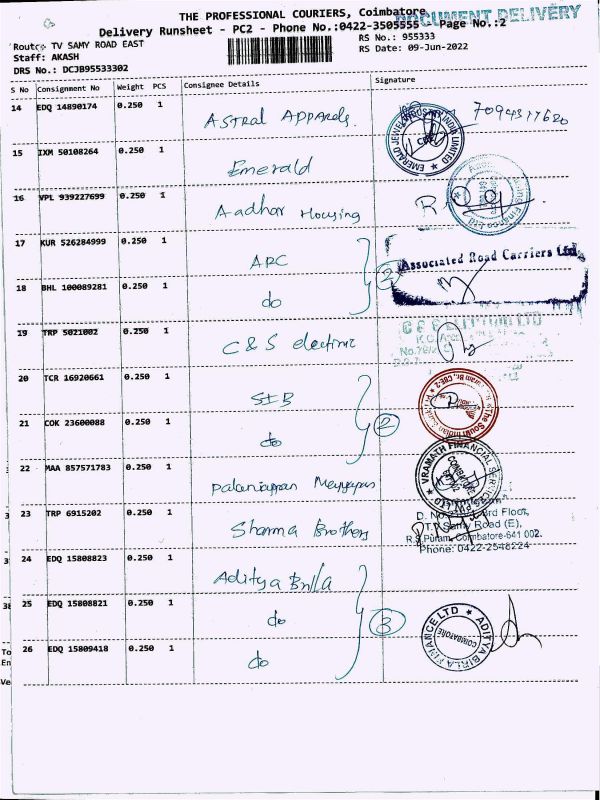 THE PROFESSIONAL COURIERS, Coimbatore
DOCUMENT DELIVERY
Delivery Runsheet - PC2 - Phone No.:0422-3505555 Page No.:2
Route: TV SAMY ROAD EAST
RS No.: 955333
Staff: AKASH
RS Date: 09-Jun-2022
DRS No.: DCJB95533302
S No Consignment No Weight PCS Consignee Details Signature
14 EDQ 14890174 0.250 1 ASTRAL APPARELS. 7094317620
EMERALD JEWEL INDUSTRY INDIA LIMITED
15 IXM 50108264 0.250 1 Emerald
16 VPL 939227699 0.250 1 Aadhar Housing
17 KUR 526284999 0.250 1 ARC 2 Associated Road Carriers Ltd
18 BHL 100089281 0.250 1 do
19 TRP 5021002 0.250 1 C & S electric
20 TCR 16920661 0.250 1 SIB
The South Indian Bank
21 COK 23600088 0.250 1 do 2
22 MAA 857571783 0.250 1 Palaniappan Meyyapan
VRAMATH FINANCIAL SERVICES PVT LTD
COIMBATORE
23 TRP 6915202 0.250 1 Sharma Brothers
D. No. 3rd Floor,
T.V. Samy Road (E),
R.S.Puram, Coimbatore-641 002.
Phone: 0422-2548224
24 EDQ 15808823 0.250 1 Aditya Birla
25 EDQ 15808821 0.250 1 do 3
ADITYA BIRLA FINANCE LTD
COIMBATORE
26 EDQ 15809418 0.250 1 do
To
En
Ve